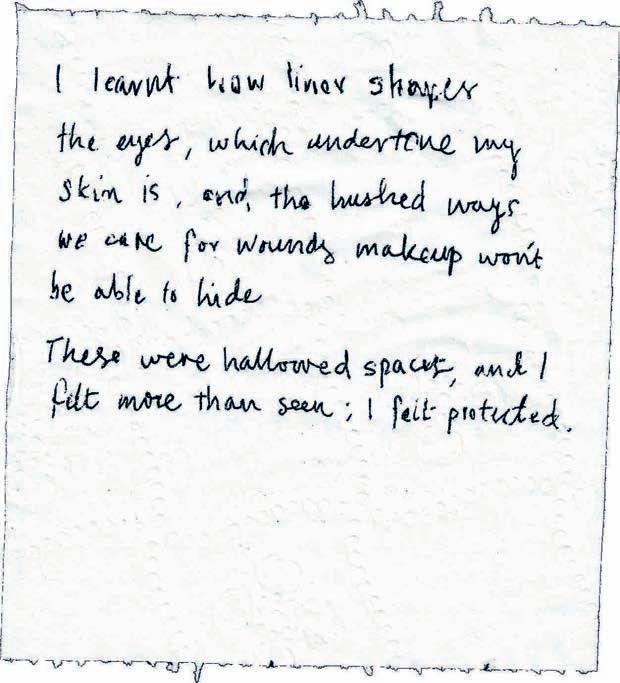 I learnt how liner shapes
the eyes, which undertone my
skin is, and, the hushed ways
we care for wounds makeup won't
be able to hide
These were hallowed spaces, and I
felt more than seen; I felt protected.